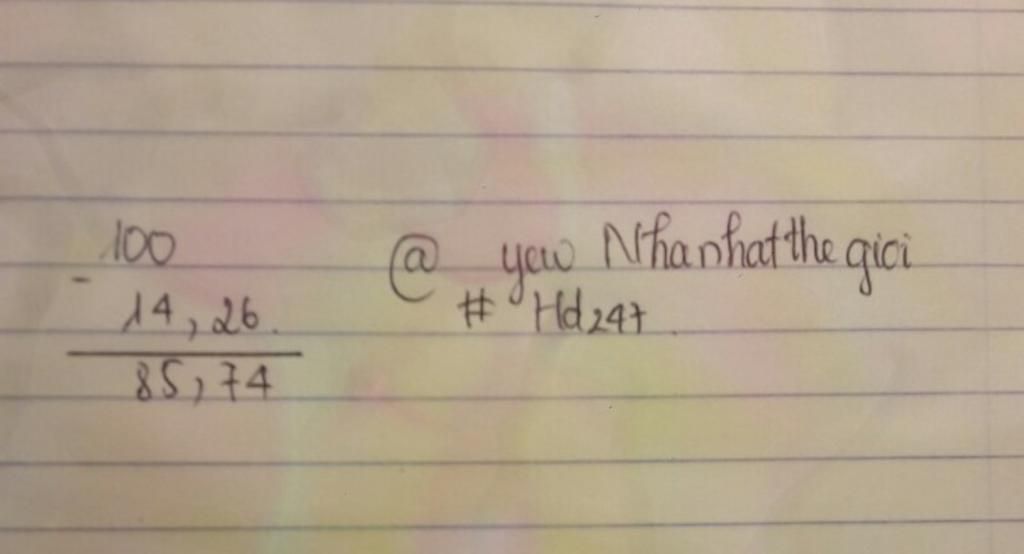 100
-
14,26.
85,74
@ yew Nhanhatthe gioi
# Hd247